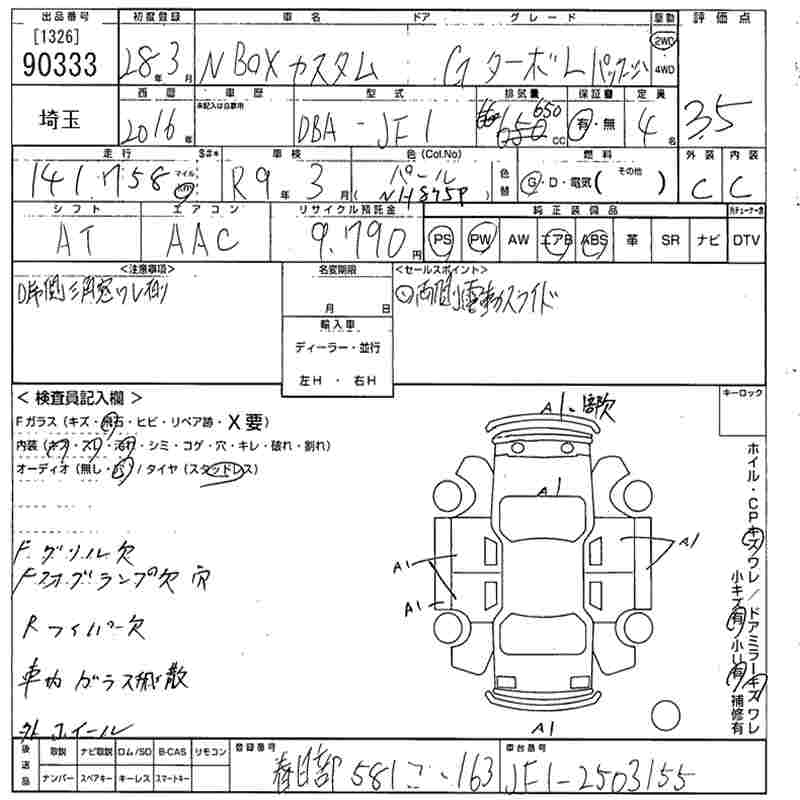 出品番号 初度登録 車名 ドア グレード 駆動 評価点
[1326]
90333 28年3月 N BOX カスタム G ターボ L パッケージ 2WD 4WD 3.5
埼玉 西暦 車歴 型式 排気量 保証書 定員
未記入は自家用
2016年 DBA - JF1 650 cc 有・無 4名
走行 S#* 車検 色(Col.No) 燃料 外装 内装
141,758 マイル km R9年3月 パール (NH875P) 色替 G・D・電気( その他 ) C C
シフト エアコン リサイクル預託金 純正装備品
AT AAC 9,790円 PS PW AW エアB ABS 革 SR ナビ DTV
<注意事項> 名変期限 <セールスポイント>
D席側三角窓ワレ有り 月 日 両側電動スライド
輸入車
ディーラー・並行
左H ・ 右H
< 検査員記入欄 > キーロック
Fガラス (キズ・飛石・ヒビ・リペア跡・X要)
内装 (キズ・スリ・汚れ・シミ・コゲ・穴・キレ・破れ・割れ)
オーディオ (無し・/ タイヤ (スタッドレス)
F グリル欠
Fフォグランプ欠 穴
R ワイパー欠
車内 ガラス飛散
外ホイール
A1
A1
A1
A1
A1
A1
ホイル・CPキズワレ/ドアミラーキズワレ
小キズ有 小U有 補修有
後送品 取説 ナビ取説 ロム/SD B-CAS リモコン 登録番号 車台番号
ナンバー スペアキー キーレス スマートキー 春日部 581 163 JF1-2503155